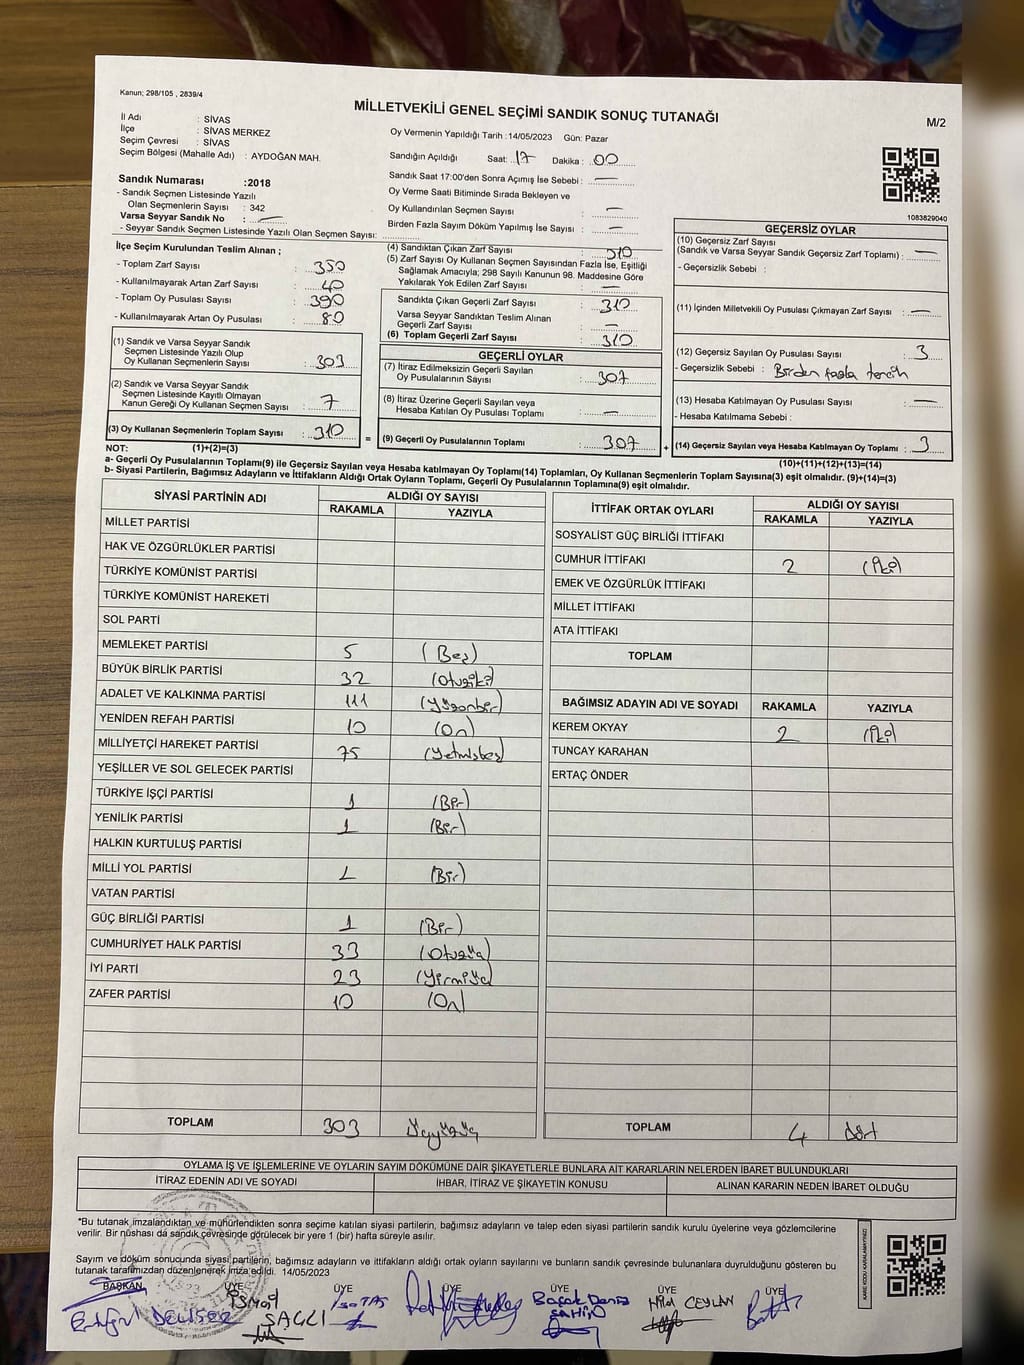 Kanun; 298/105 , 2839/4
MİLLETVEKİLİ GENEL SEÇİMİ SANDIK SONUÇ TUTANAĞI
M/2
İl Adı : SİVAS
İlçe : SİVAS MERKEZ
Seçim Çevresi : SİVAS
Seçim Bölgesi (Mahalle Adı) : AYDOĞAN MAH.
Oy Vermenin Yapıldığı Tarih :14/05/2023 Gün: Pazar
Sandığın Açıldığı Saat: 17 Dakika : 00
Sandık Saat 17:00'den Sonra Açımış İse Sebebi : —
Oy Verme Saati Bitiminde Sırada Bekleyen ve
Oy Kullandırılan Seçmen Sayısı : —
Birden Fazla Sayım Döküm Yapılmış İse Sayısı : —
1083829040
Sandık Numarası :2018
- Sandık Seçmen Listesinde Yazılı
Olan Seçmenlerin Sayısı : 342
Varsa Seyyar Sandık No : —
- Seyyar Sandık Seçmen Listesinde Yazılı Olan Seçmen Sayısı:
İlçe Seçim Kurulundan Teslim Alınan ;
- Toplam Zarf Sayısı : 350
- Kullanılmayarak Artan Zarf Sayısı : 40
- Toplam Oy Pusulası Sayısı : 390
- Kullanılmayarak Artan Oy Pusulası : 80
(1) Sandık ve Varsa Seyyar Sandık
Seçmen Listesinde Yazılı Olup
Oy Kullanan Seçmenlerin Sayısı : 303
(2) Sandık ve Varsa Seyyar Sandık
Seçmen Listesinde Kayıtlı Olmayan
Kanun Gereği Oy Kullanan Seçmen Sayısı : 7
(3) Oy Kullanan Seçmenlerin Toplam Sayısı : 310
(4) Sandıktan Çıkan Zarf Sayısı : 310
(5) Zarf Sayısı Oy Kullanan Seçmen Sayısından Fazla İse, Eşitliği
Sağlamak Amacıyla; 298 Sayılı Kanunun 98. Maddesine Göre
Yakılarak Yok Edilen Zarf Sayısı : —
Sandıkta Çıkan Geçerli Zarf Sayısı : 310
Varsa Seyyar Sandıktan Teslim Alınan
Geçerli Zarf Sayısı : —
(6) Toplam Geçerli Zarf Sayısı : 310
GEÇERLİ OYLAR
(7) İtiraz Edilmeksizin Geçerli Sayılan
Oy Pusulalarının Sayısı : 307
(8) İtiraz Üzerine Geçerli Sayılan veya
Hesaba Katılan Oy Pusulası Toplamı : —
= (9) Geçerli Oy Pusulalarının Toplamı : 307
GEÇERSİZ OYLAR
(10) Geçersiz Zarf Sayısı
(Sandık ve Varsa Seyyar Sandık Geçersiz Zarf Toplamı) : —
- Geçersizlik Sebebi :
(11) İçinden Milletvekili Oy Pusulası Çıkmayan Zarf Sayısı : —
(12) Geçersiz Sayılan Oy Pusulası Sayısı : 3
- Geçersizlik Sebebi : Birden fazla tercih
(13) Hesaba Katılmayan Oy Pusulası Sayısı : —
- Hesaba Katılmama Sebebi :
+ (14) Geçersiz Sayılan veya Hesaba Katılmayan Oy Toplamı : 3
NOT: (1)+(2)=(3)
(10)+(11)+(12)+(13)=(14)
a- Geçerli Oy Pusulalarının Toplamı(9) ile Geçersiz Sayılan veya Hesaba katılmayan Oy Toplamı(14) Toplamları, Oy Kullanan Seçmenlerin Toplam Sayısına(3) eşit olmalıdır. (9)+(14)=(3)
b- Siyasi Partilerin, Bağımsız Adayların ve İttifakların Aldığı Ortak Oyların Toplamı, Geçerli Oy Pusulalarının Toplamına(9) eşit olmalıdır.
SİYASİ PARTİNİN ADI ALDIĞI OY SAYISI
RAKAMLA YAZIYLA
MİLLET PARTİSİ
HAK VE ÖZGÜRLÜKLER PARTİSİ
TÜRKİYE KOMÜNİST PARTİSİ
TÜRKİYE KOMÜNİST HAREKETİ
SOL PARTİ
MEMLEKET PARTİSİ 5 (Beş)
BÜYÜK BİRLİK PARTİSİ 32 (Otuziki)
ADALET VE KALKINMA PARTİSİ 111 (Yüzonbir)
YENİDEN REFAH PARTİSİ 10 (On)
MİLLİYETÇİ HAREKET PARTİSİ 75 (Yetmişbeş)
YEŞİLLER VE SOL GELECEK PARTİSİ
TÜRKİYE İŞÇİ PARTİSİ 1 (Bir)
YENİLİK PARTİSİ 1 (Bir)
HALKIN KURTULUŞ PARTİSİ
MİLLİ YOL PARTİSİ 1 (Bir)
VATAN PARTİSİ
GÜÇ BİRLİĞİ PARTİSİ 1 (Bir)
CUMHURİYET HALK PARTİSİ 33 (Otuzüç)
İYİ PARTİ 23 (Yirmiüç)
ZAFER PARTİSİ 10 (On)
TOPLAM 303 Üçyüzüç
İTTİFAK ORTAK OYLARI ALDIĞI OY SAYISI
RAKAMLA YAZIYLA
SOSYALİST GÜÇ BİRLİĞİ İTTİFAKI
CUMHUR İTTİFAKI 2 (İki)
EMEK VE ÖZGÜRLÜK İTTİFAKI
MİLLET İTTİFAKI
ATA İTTİFAKI
TOPLAM
BAĞIMSIZ ADAYIN ADI VE SOYADI RAKAMLA YAZIYLA
KEREM OKYAY 2 (İki)
TUNCAY KARAHAN
ERTAÇ ÖNDER
TOPLAM 4 Dört
OYLAMA İŞ VE İŞLEMLERİNE VE OYLARIN SAYIM DÖKÜMÜNE DAİR ŞİKAYETLERLE BUNLARA AİT KARARLARIN NELERDEN İBARET BULUNDUKLARI
İTİRAZ EDENİN ADI VE SOYADI İHBAR, İTİRAZ VE ŞİKAYETİN KONUSU ALINAN KARARIN NEDEN İBARET OLDUĞU
*Bu tutanak imzalandıktan ve mühürlendikten sonra seçime katılan siyasi partilerin, bağımsız adayların ve talep eden siyasi partilerin sandık kurulu üyelerine veya gözlemcilerine
verilir. Bir nüshası da sandık çevresinde görülecek bir yere 1 (bir) hafta süreyle asılır.
Sayım ve döküm sonucunda siyasi partilerin, bağımsız adayların ve ittifakların aldığı ortak oyların sayılarını ve bunların sandık çevresinde bulunanlara duyrulduğunu gösteren bu
tutanak tarafımızdan düzenlenerek imza edildi. 14/05/2023
KARE KODU KARALAMAYINIZ!
BAŞKAN ÜYE ÜYE ÜYE ÜYE ÜYE ÜYE
SAĞLI
Başak Deniz
ŞAHİN
Hilal CEYLAN